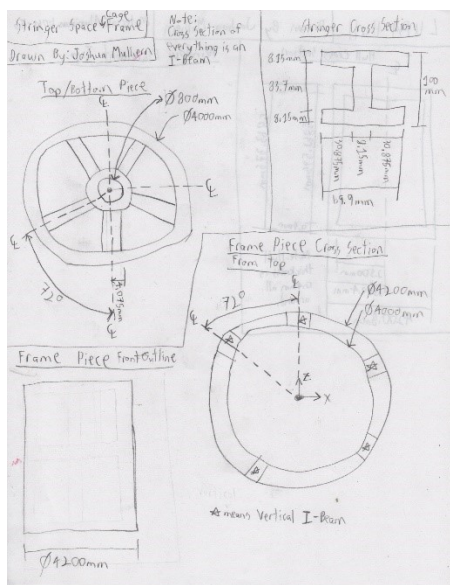 Stringer Space Cage Frame
Drawn By: Joshua Mulhern
Note:
Cross Section of
Everything is an
I-Beam
Stringer Cross Section
8.15mm
8.15mm
100
mm
9.15mm
Top/Bottom Piece
Ø800mm
Ø4000mm
℄
℄
℄
℄
72°
Frame Piece Cross Section
From Top
72°
℄
℄
Ø4200mm
Ø4000mm
Z
X
☆ means Vertical I-Beam
Frame Piece Front Outline
Ø4200mm